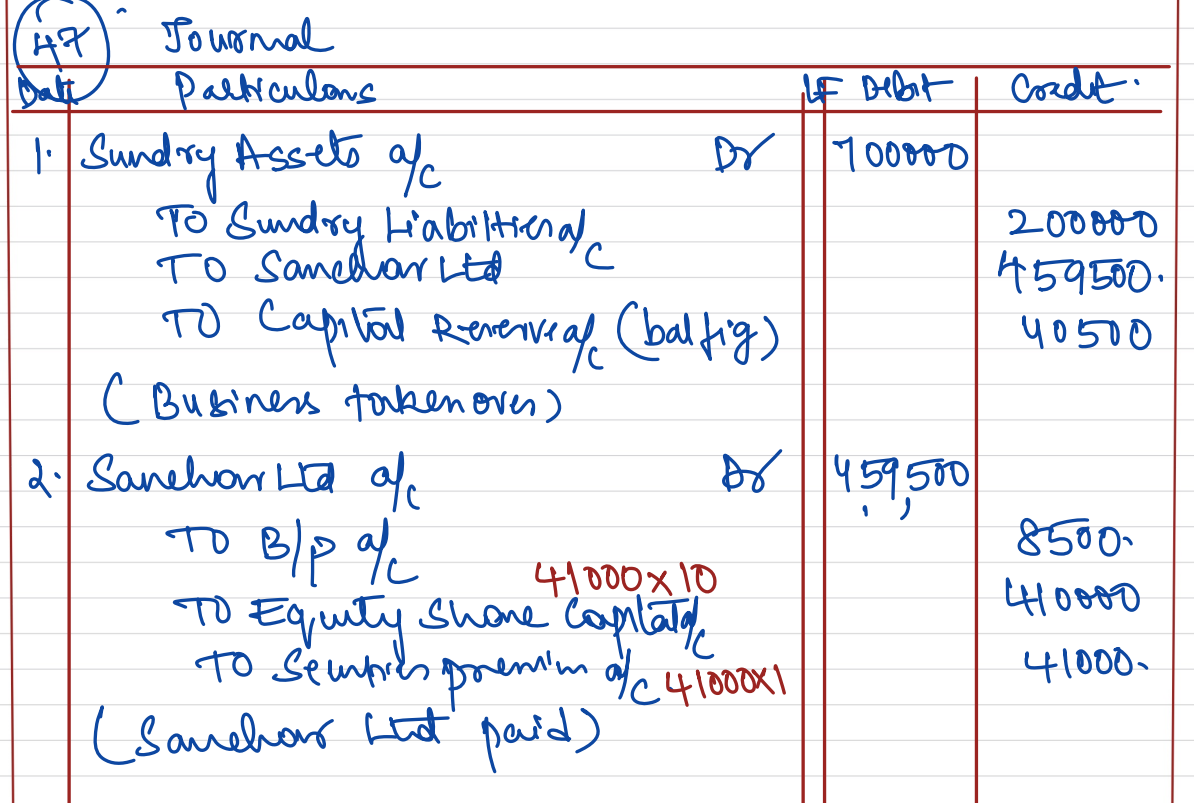 47 Journal
Date Particulars LF Debit Credit.
1. Sundry Assets a/c Dr 700000
To Sundry Liabilities a/c 200000
To Sanchar Ltd 459500.
To Capital Reserve a/c (bal fig) 40500
(Business taken over)
2. Sanchar Ltd a/c Dr 459,500
To B/p a/c 8500.
41000 x 10
To Equity Share Capital a/c 410000
To Securities premium a/c 41000x1 41000.
(Sanchar Ltd paid)